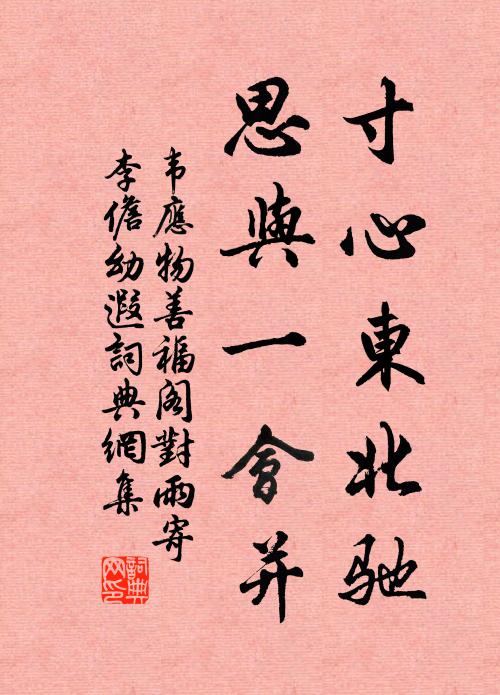 寸心東北馳
思與一會并
韦應物善福阁對雨寄
李儋幼遐詞典網集
詞典网印